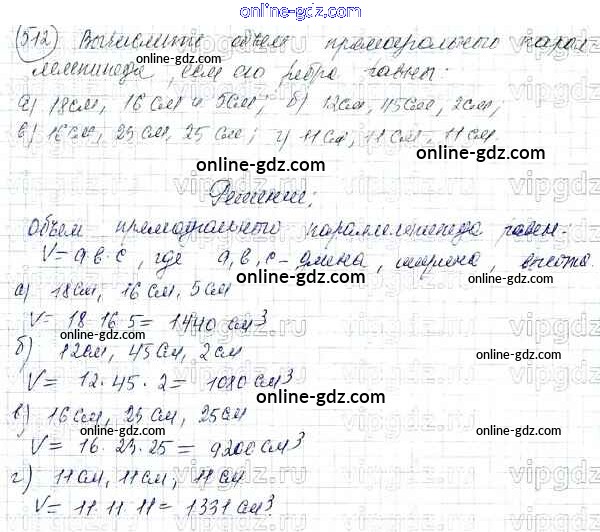 online-gdz.com
512) Вычислите объем прямоугольного парал
лелепипеда, если его ребра равны:
а) 18см, 16см и 5см; б) 12см, 45см, 2см;
в) 16см, 23см, 25см; г) 11см, 11см, 11см.
online-gdz.com
Решение:
online-gdz.com
Объем прямоугольного параллелепипеда равен
V=а·в·с, где а,в,с-длина, ширина, высота.
online-gdz.com
а) 18см, 16см, 5см
V= 18·16·5= 1440 см³
online-gdz.com
б) 12см, 45см, 2см
V= 12·45·2= 1080см³
online-gdz.com
в) 16см, 23см, 25см
V= 16·23·25= 9200см³
online-gdz.com
г) 11см, 11см, 11см
V= 11·11·11= 1331см³.
online-gdz.com